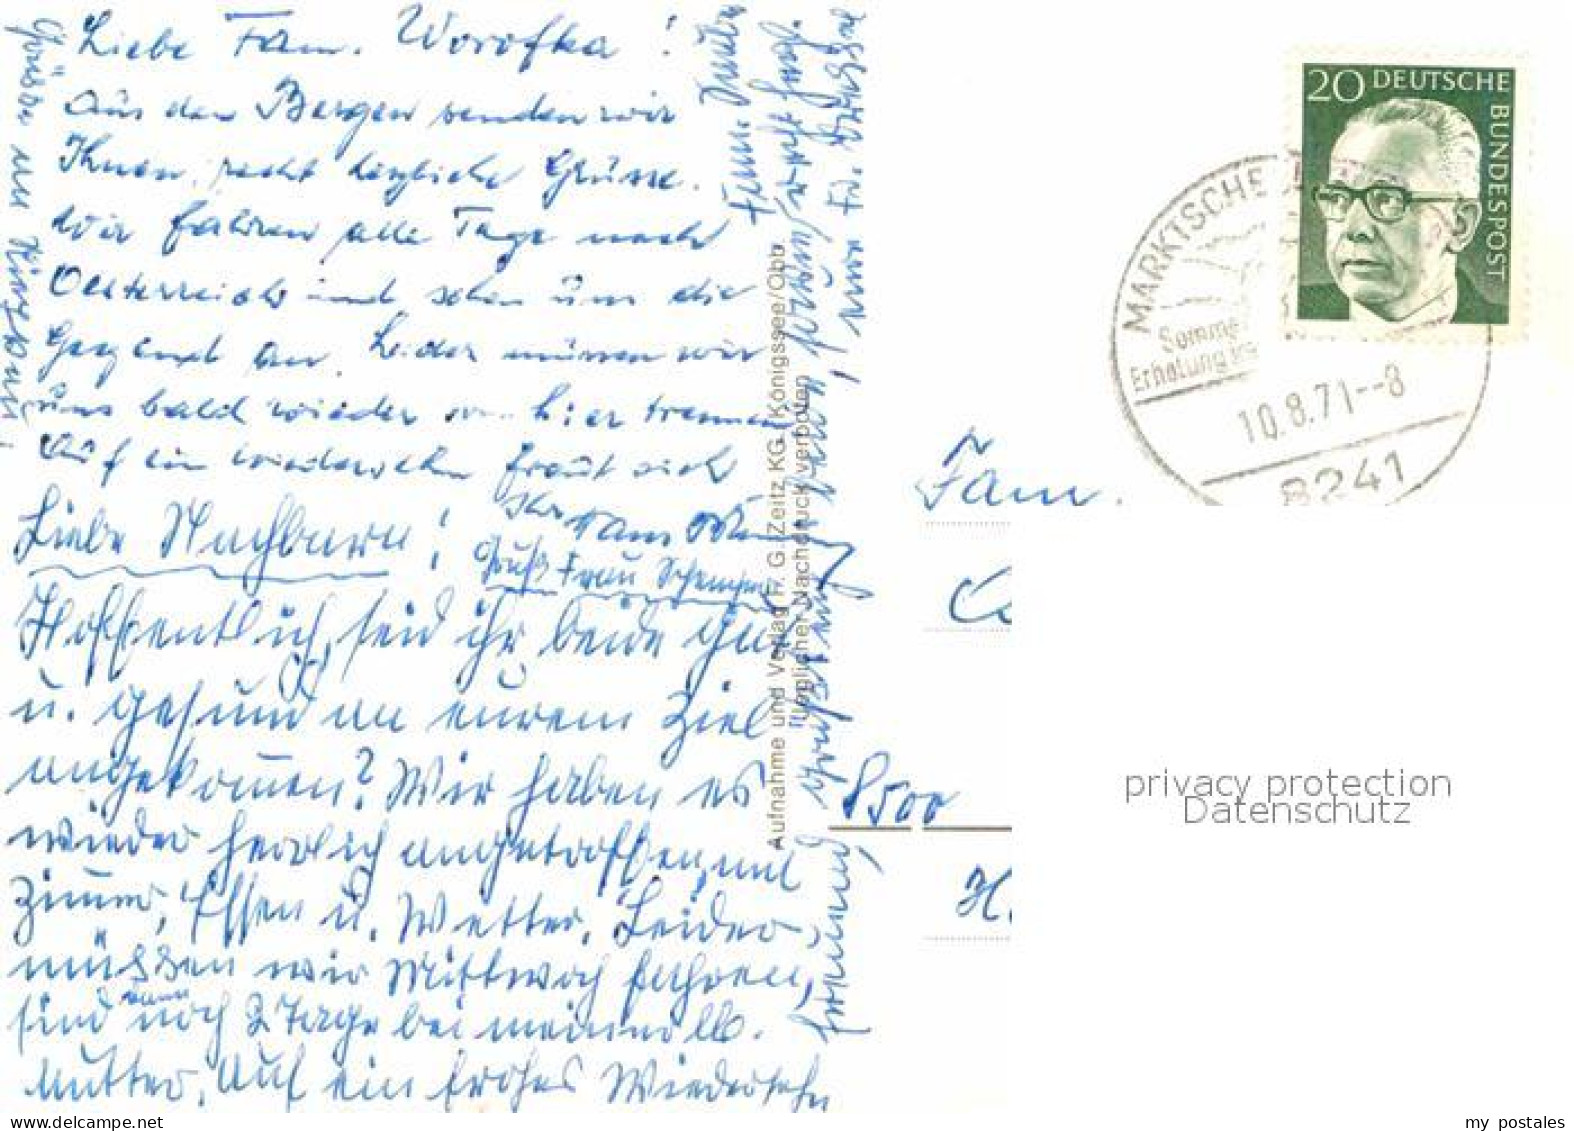 Liebe Fam. Worofka!
Aus den Bergen senden wir
Ihnen recht herzliche Grüsse.
Wir fahren alle Tage nach
Oesterreich und sehen uns die
Gegend an. Leider müssen wir
uns bald wieder von hier trennen
Auf ein wiedersehen freut sich
Ihre Fam.
Liebe Nachbarn!
Gruß Frau
Hoffentlich seid ihr beide gut
u. gesund an eurem Ziel
angekommen? Wir haben es
wieder herrlich angetroffen, mit
Zimmer, Essen u. Wetter. Leider
müssen wir Mittwoch fahren,
sind dann noch 2 Tage bei meiner lb.
Mutter. Auf ein frohes Wiedersehn
Aufnahme und Verlag Fr. G. Zeitz KG. Königssee/Obb
Jeglicher Nachdruck verboten
20 DEUTSCHE
BUNDESPOST
MARKTSCHE
Somme
Erholung
10.8.71--8
8241
Fam.
8500
H.
privacy protection
Datenschutz
www.delcampe.net
my_postales